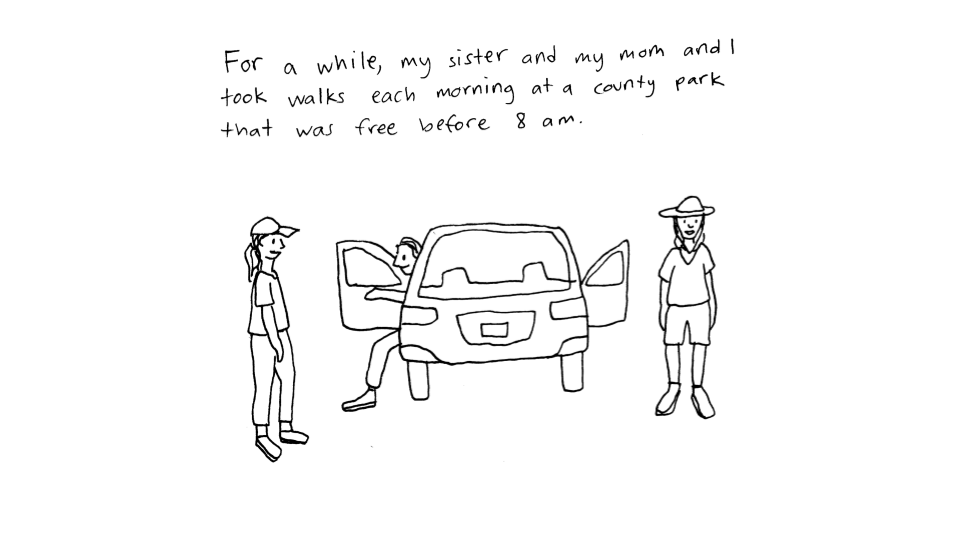 For a while, my sister and my mom and I
took walks each morning at a county park
that was free before 8 am.